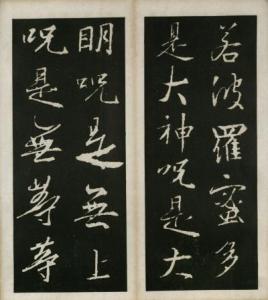 若波羅蜜多
是大神呪是大
明呪是無上
呪是無等等